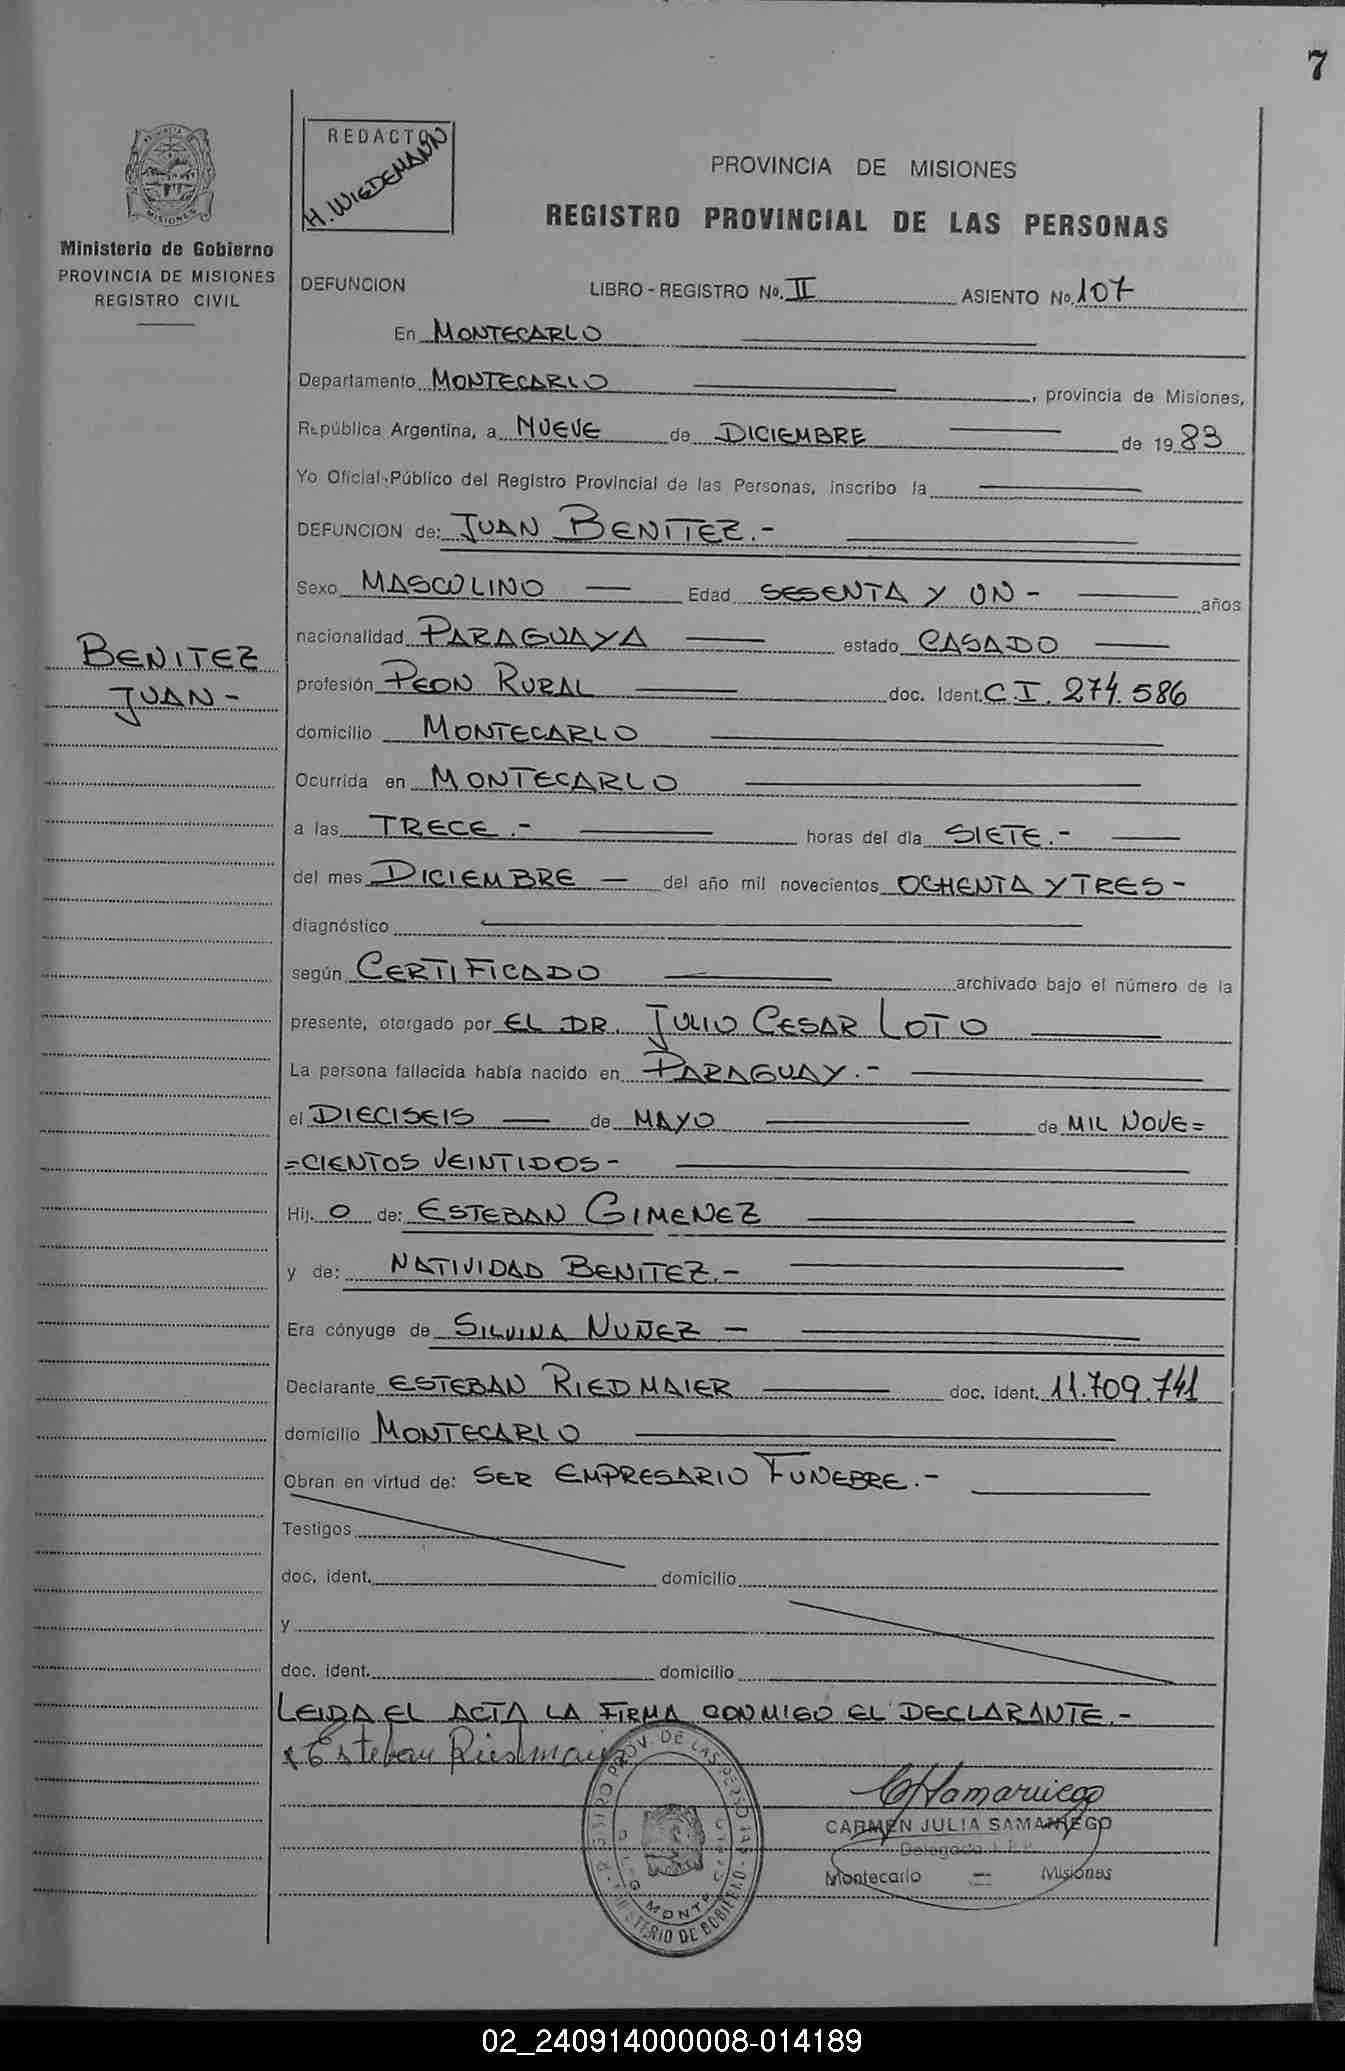 7
REDACTO
H. WIEDEMANN
MISIONES
Ministerio de Gobierno
PROVINCIA DE MISIONES
REGISTRO CIVIL
PROVINCIA DE MISIONES
REGISTRO PROVINCIAL DE LAS PERSONAS
DEFUNCION LIBRO - REGISTRO No. II ASIENTO No. 107
En MONTECARLO
Departamento MONTECARLO , provincia de Misiones,
República Argentina, a NUEVE de DICIEMBRE de 19 83
Yo Oficial Público del Registro Provincial de las Personas, inscribo la
DEFUNCION de: JUAN BENITEZ.-
Sexo MASCULINO — Edad SESENTA Y UN - años
BENITEZ
JUAN -
nacionalidad PARAGUAYA estado CASADO
profesión PEON RURAL doc. Ident. C.I. 274.586
domicilio MONTECARLO
Ocurrida en MONTECARLO
a las TRECE.- horas del día SIETE.-
del mes DICIEMBRE — del año mil novecientos OCHENTA Y TRES -
diagnóstico
según CERTIFICADO archivado bajo el número de la
presente, otorgado por EL DR. JULIO CESAR LOTO
La persona fallecida había nacido en PARAGUAY.-
el DIECISEIS — de MAYO de MIL NOVE=
=CIENTOS VEINTIDOS -
Hij. O de: ESTEBAN GIMENEZ
y de: NATIVIDAD BENITEZ.-
Era cónyuge de SILVINA NUÑEZ -
Declarante ESTEBAN RIEDMAIER doc. ident. 11.709.741
domicilio MONTECARLO
Obran en virtud de: SER EMPRESARIO FUNEBRE.-
Testigos
doc. ident. domicilio
y
doc. ident. domicilio
LEIDA EL ACTA LA FIRMA CONMIGO EL DECLARANTE.-
x Esteban Riedmaier
CARMEN JULIA SAMANIEGO
Montecarlo — Misiones
02_240914000008-014189